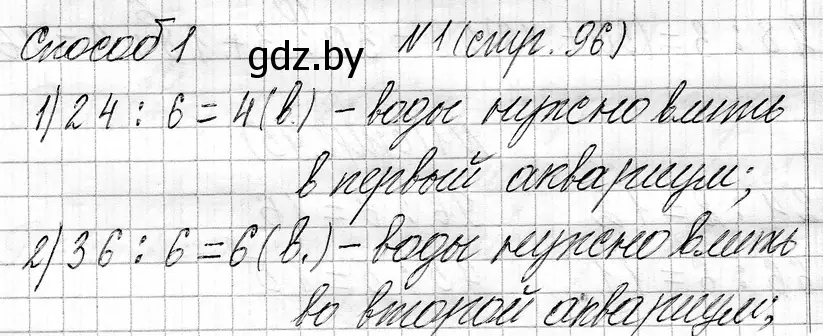 Способ 1 №1 (стр. 96)
gdz.by
1) 24 : 6 = 4 (в.) – воды нужно влить
в первый аквариум;
2) 36 : 6 = 6 (в.) – воды нужно влить
во второй аквариум;